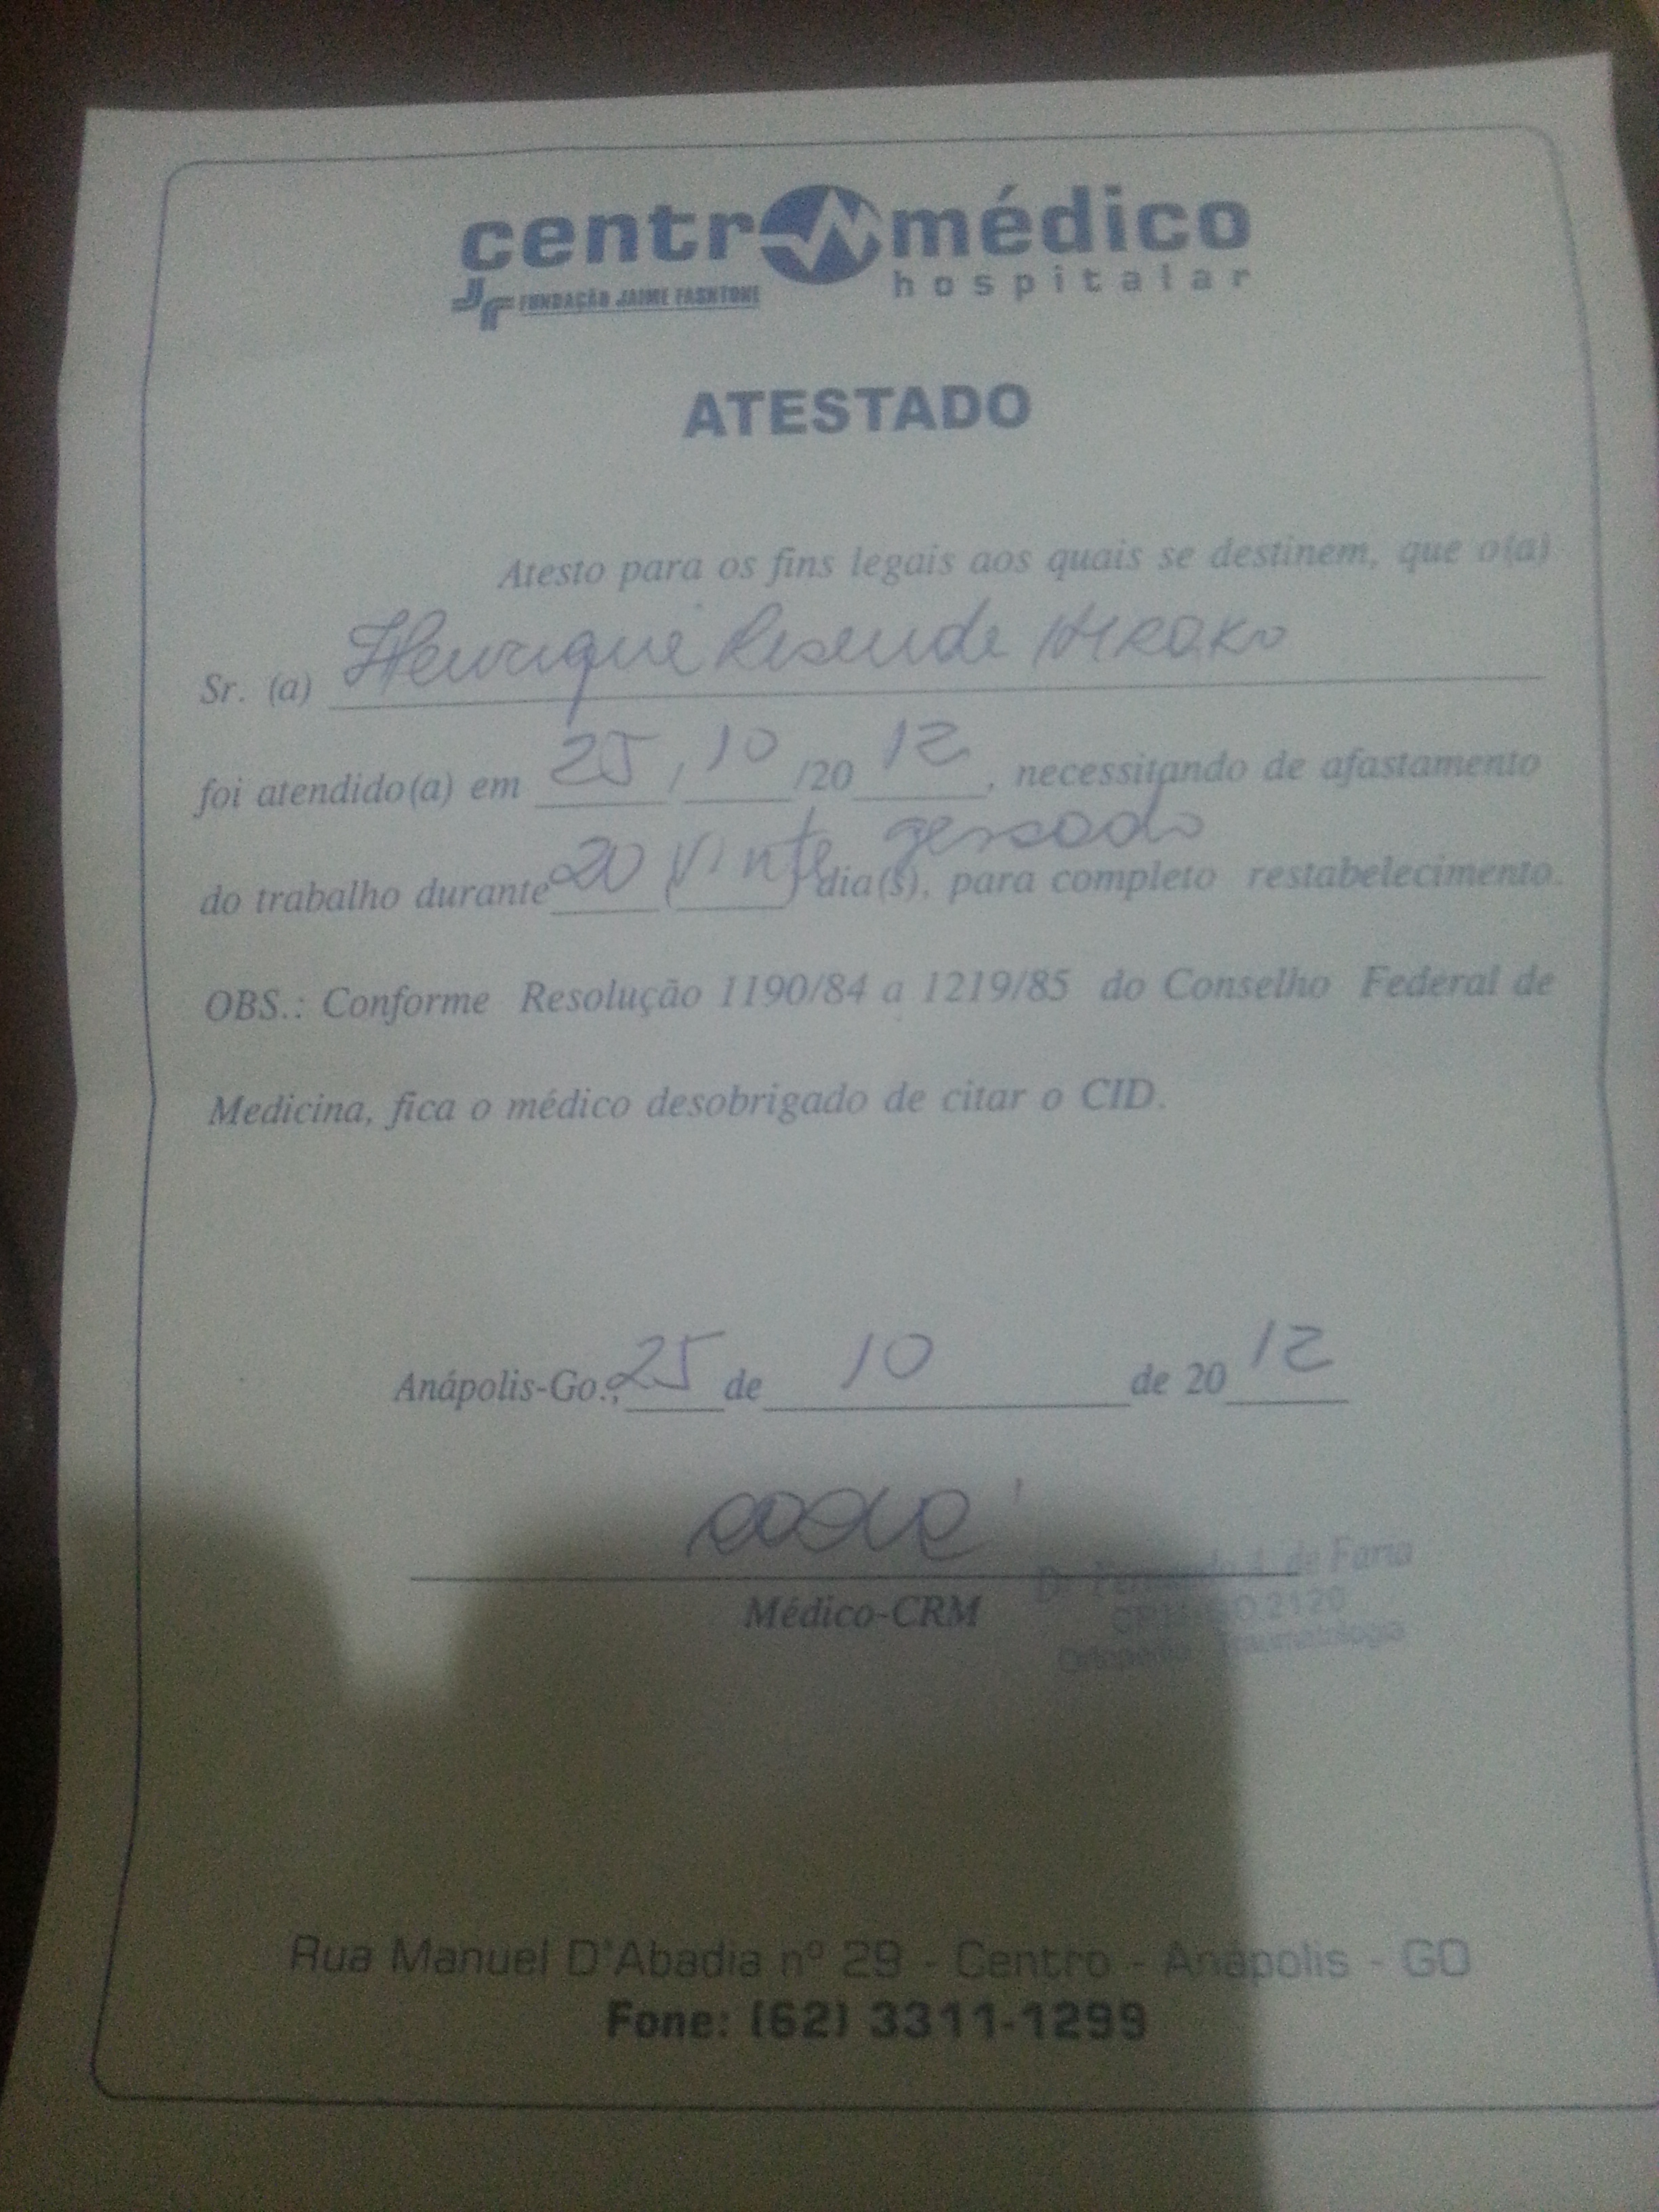 centro médico
hospitalar
FUNDAÇÃO JAIME FASNTONE
ATESTADO
Atesto para os fins legais aos quais se destinem, que o(a)
Sr. (a) Henrique Resende
foi atendido(a) em 25/10/2012, necessitando de afastamento
gessado
do trabalho durante 20 (vinte) dia(s), para completo restabelecimento.
OBS.: Conforme Resolução 1190/84 a 1219/85 do Conselho Federal de
Medicina, fica o médico desobrigado de citar o CID.
Anápolis-Go., 25 de 10 de 2012
Dr. Fernando A. de Faria
Médico-CRM
CRM-GO 2120
Ortopedia Traumatologia
Rua Manuel D'Abadia nº 29 - Centro - Anápolis - GO
Fone: (62) 3311-1299